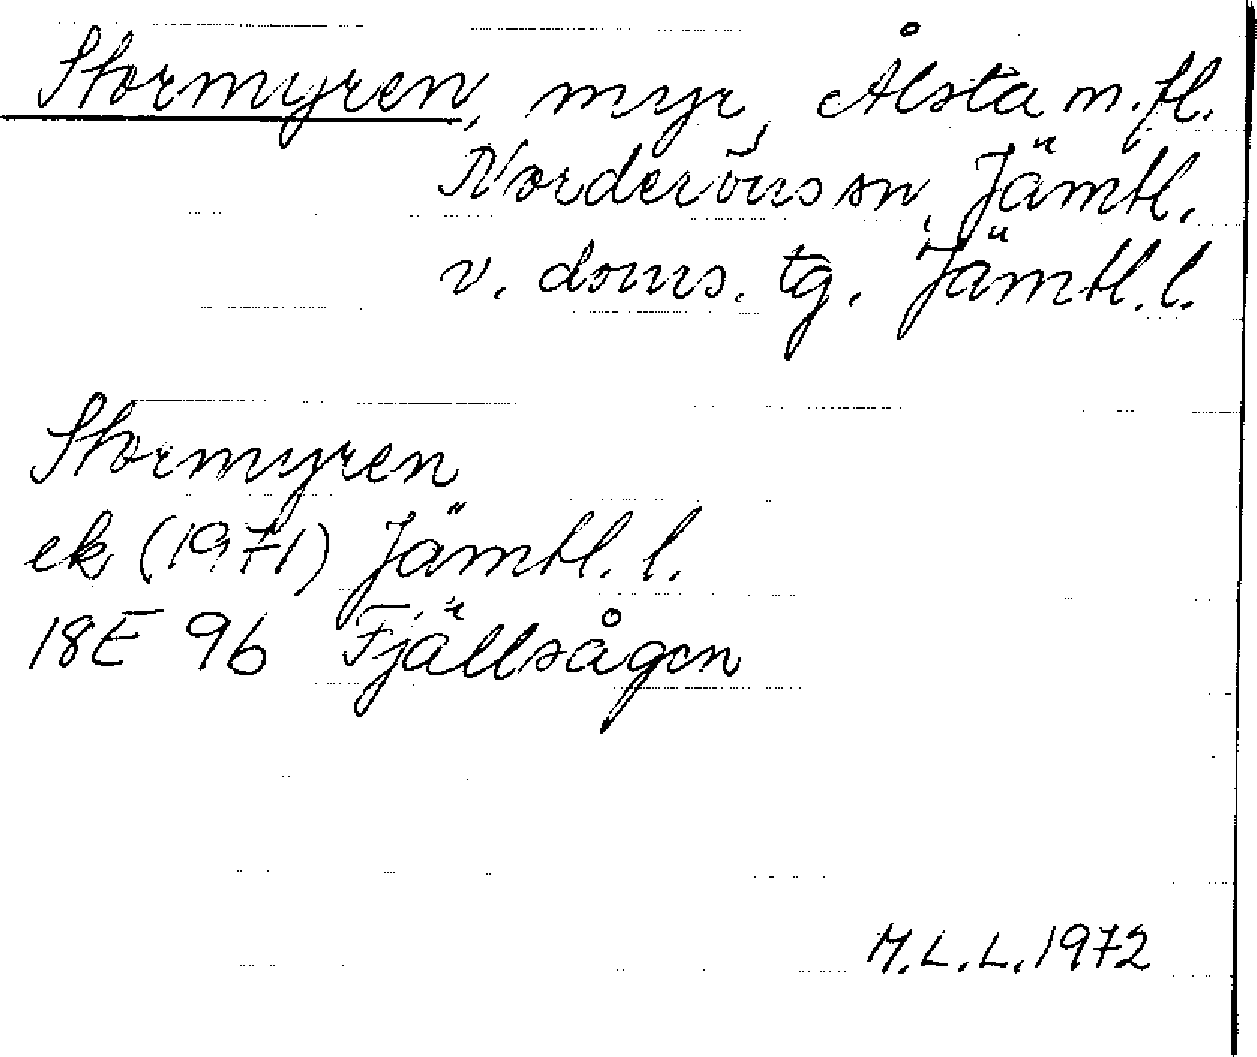 Stormyren, myr, Ålsta m.fl.
Norderöns sn, Jämtl.
v. doms. tg. Jämtl. l.
Stormyren
ek (1971) Jämtl. l.
18E 9b Fjällsågen
M.L.L. 1972